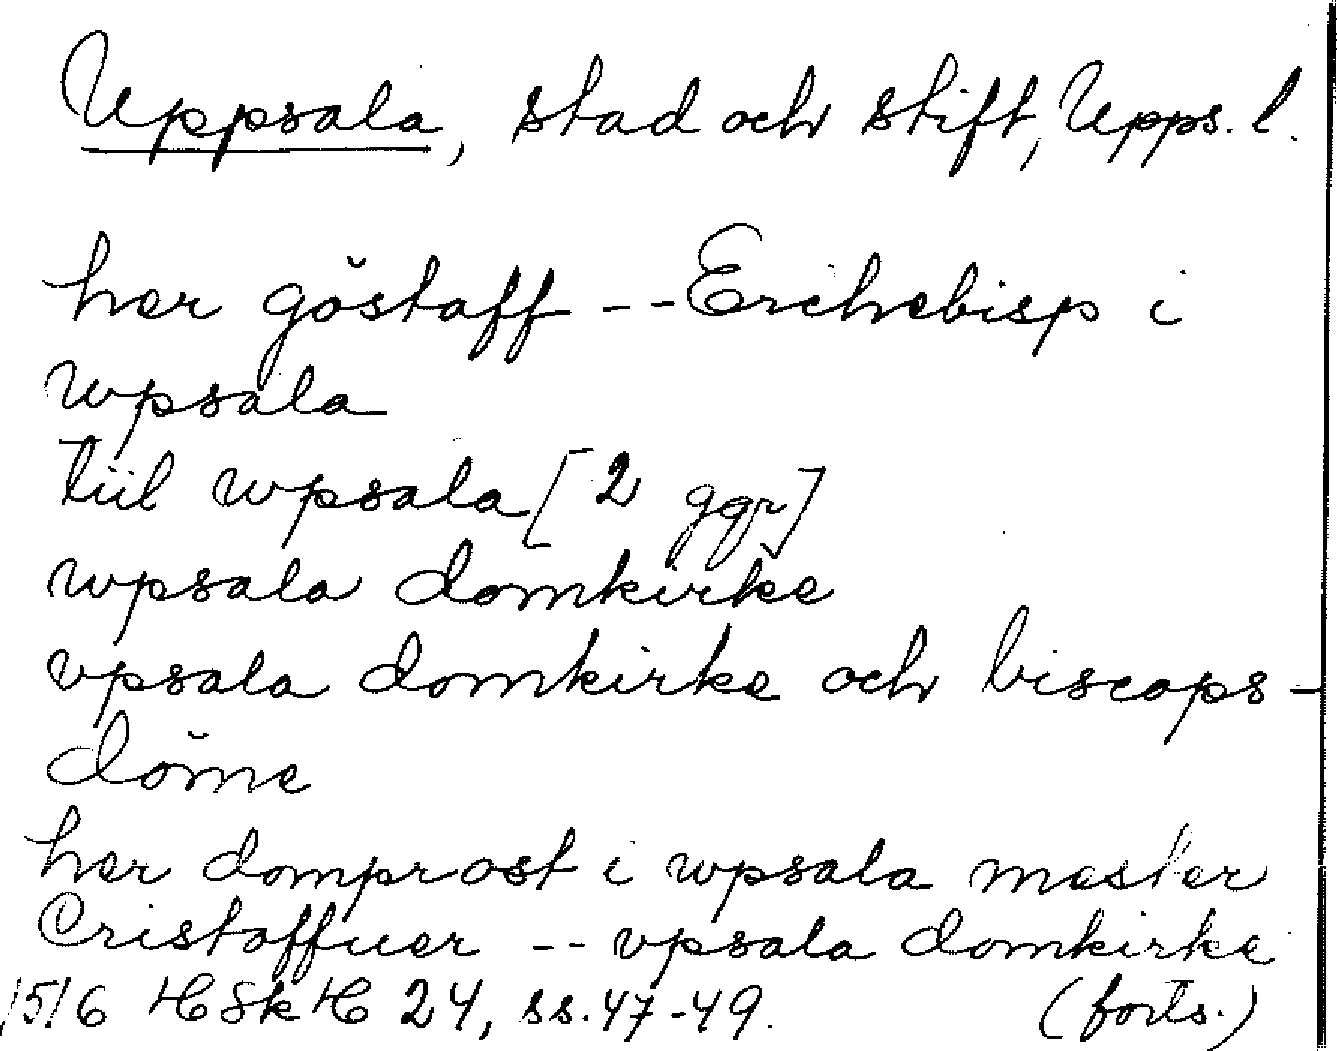 Uppsala, stad och stift, Upps. l.
her göstaff -- Erchebisp i
wpsala
tiil wpsala [2 ggr]
wpsala domkirke
vpsala domkirke och biscops-
döme
her domprost i wpsala mester
Cristoffuer -- vpsala domkirke
1516 HSkH 24, ss. 47-49. (forts.)